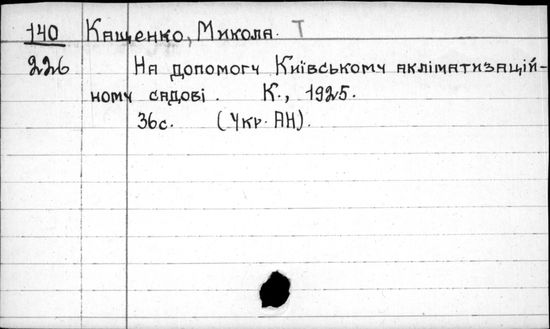 140 Кащенко, Микола. Т
226 На допомогу Київському акліматизацій-
ному садові. К., 1925.
36с. (Укр. АН).